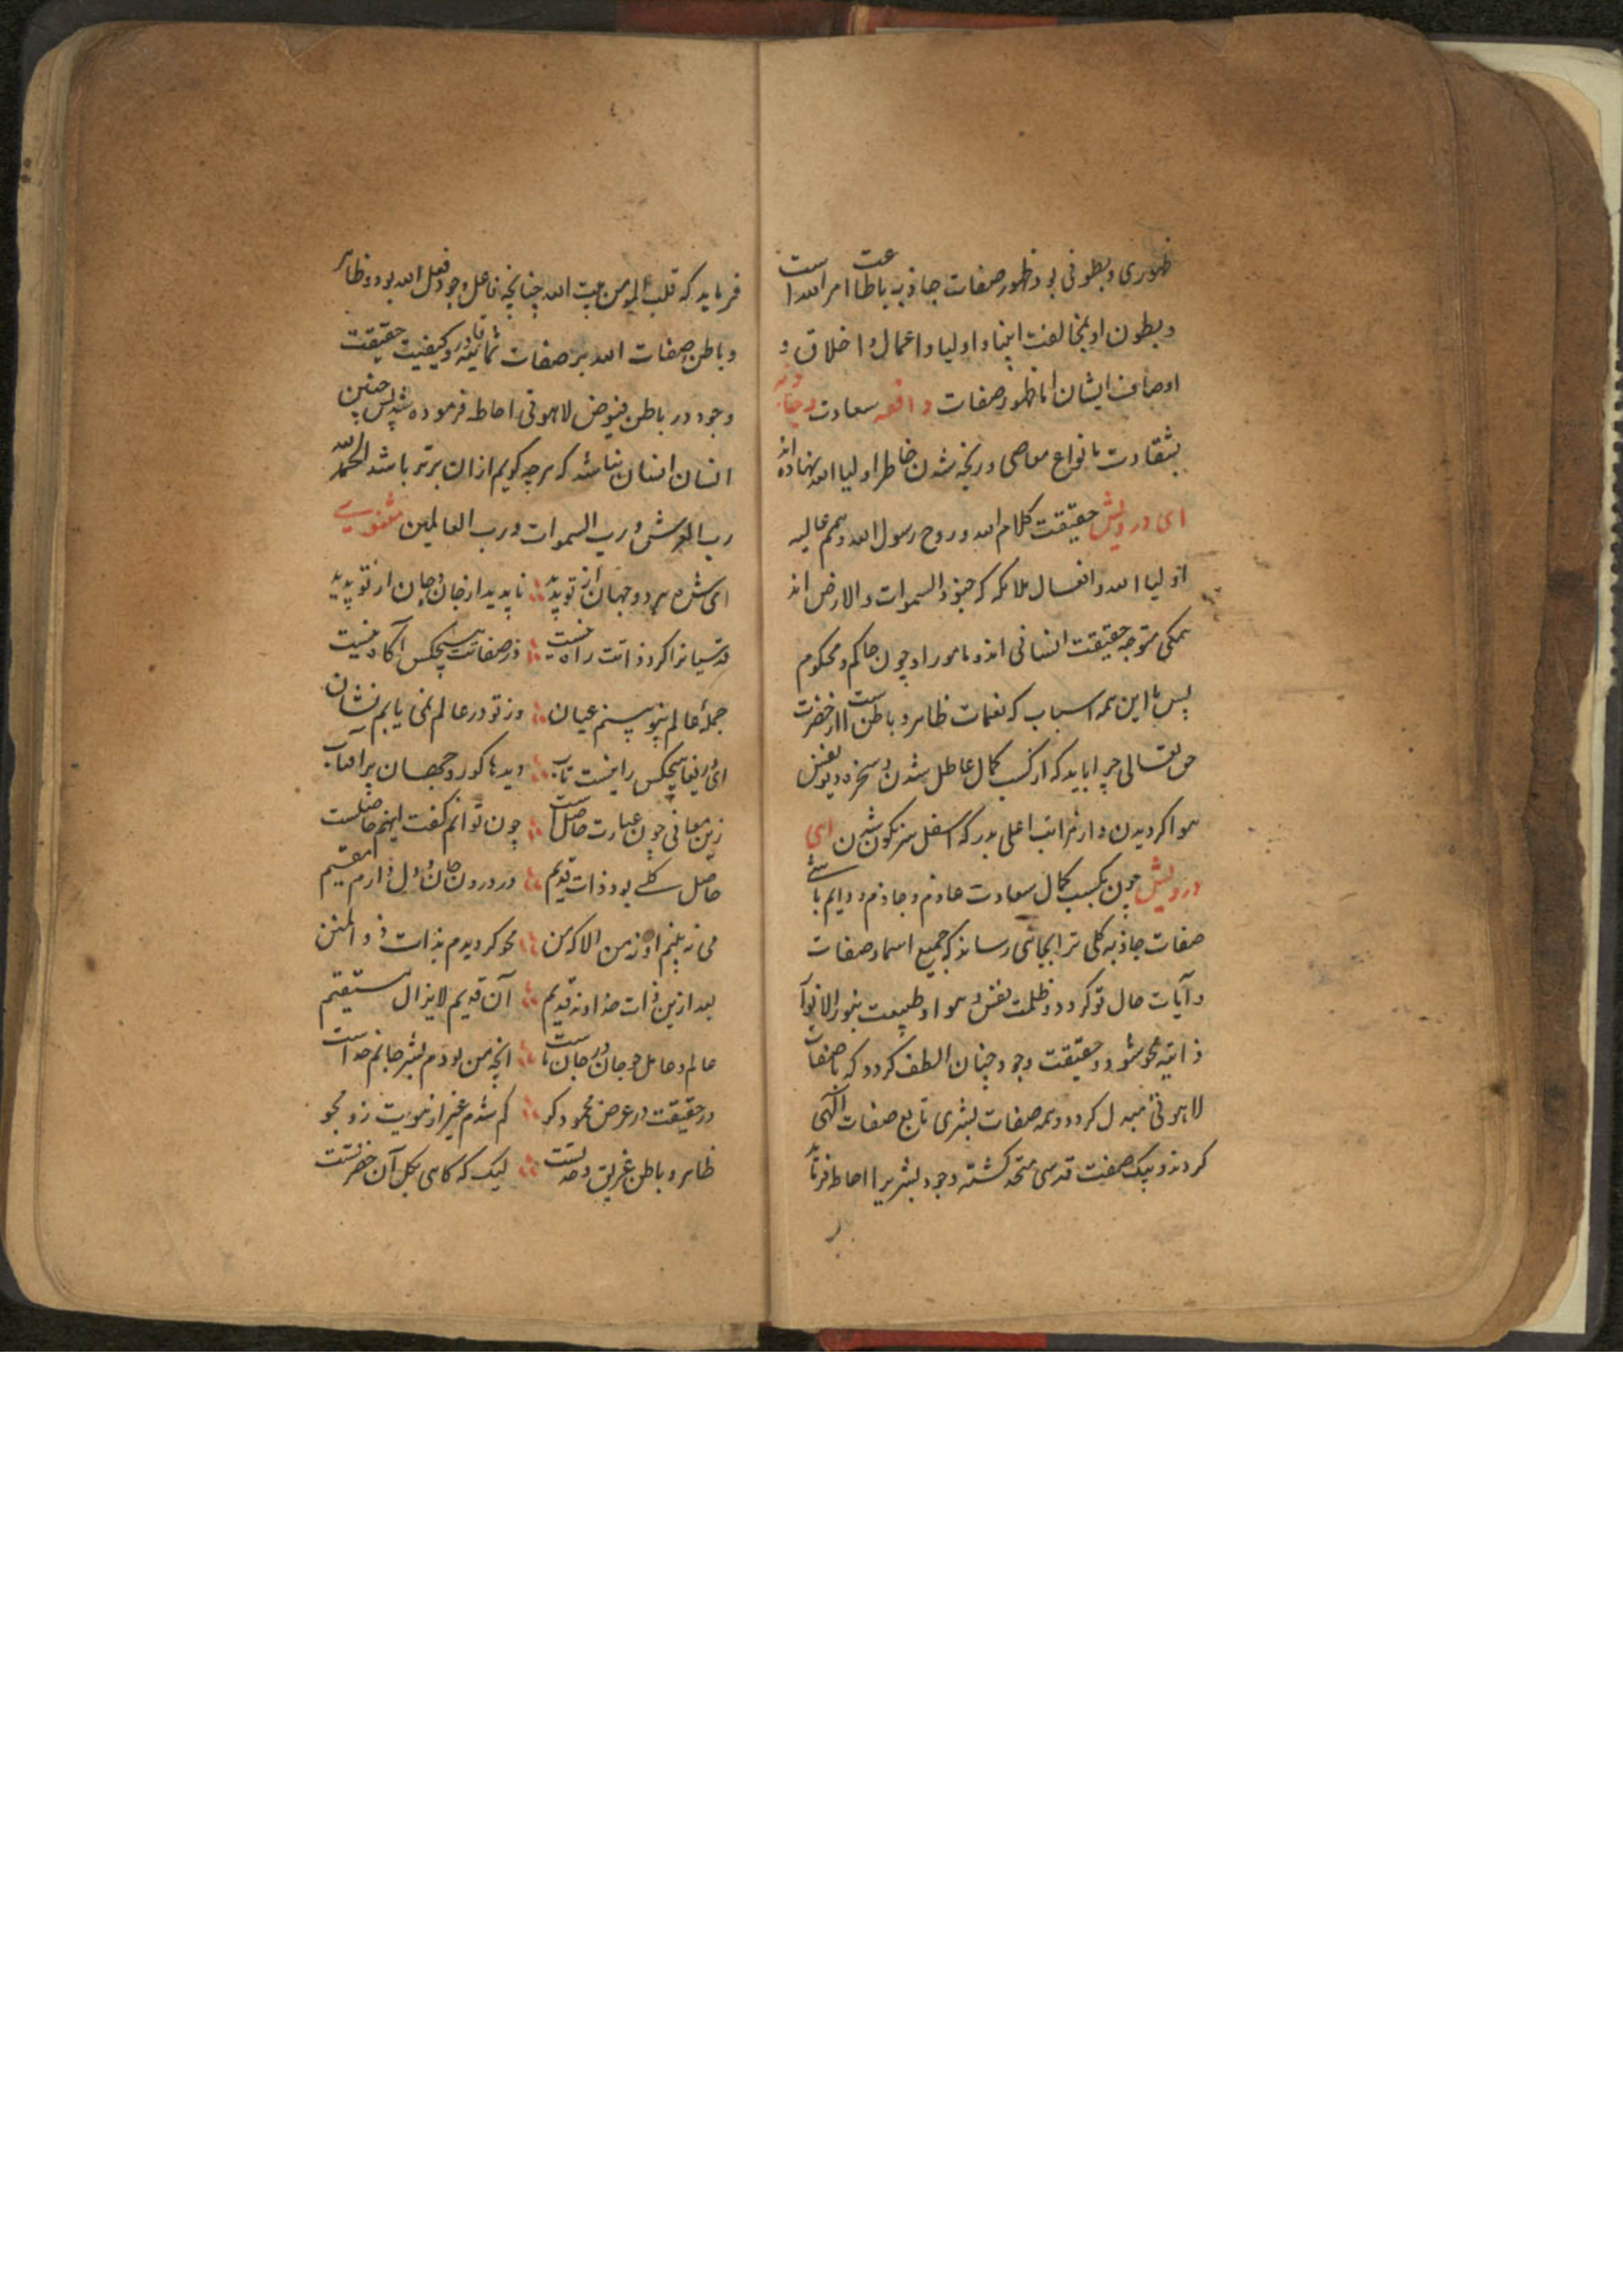 ظهوری و بطونی بود ظهور صفات جاذبه باطاعت امر الله است
و بطون او بمخالفت انبیا و اولیا و اعمال و اخلاق و
اوصاف ایشان اما ظهور صفات دافعه سعادت
بشقاوت بانواع معاصی و رنجه شدن خاطر اولیا الله نهاده اند
ای درویش حقیقت کلام الله و روح رسول الله و همم عالیه
اولیا الله و افعال ملائکه که جنود السموات والارض اند
همگی متوجه حقیقت انسانی اند و مامور او چون حاکم و محکوم
پس با این همه اسباب که نعمات ظاهر و باطن است از حضرت
حق تعالی چرا باید که از کسب کمال عاطل شدن و سخره دیو نفس
هوا کردیدن و از مراتب اعلی بدرکه اسفل سرنکون شدن ای
درویش چون بکسب کمال سعادت عازم و جازم و دایم باشی
صفات جاذبه کلی ترا بجائی رساند که جمیع اسما و صفات
و آیات حال تو کردد و ظلمت نفس و هوا و طبیعت بنور الانوار
ذاتیه محو شود و حقیقت وجود چنان الطف کردد که با صفات
لاهوتی مبدل کردد و همه صفات بشری تابع صفات الهی
کردند و بیک صفت قدسی متحد کشته وجود بشریرا احاطه فرماید
فرماید که قلب المومن بیت الله چنانچه فاعل وجود فعل الله بود و ظاهر
و باطن صفات الله بر صفات ثمانیه قادر و کیفیت حقیقت
وجود در باطن فیوض لاهوتی احاطه فرموده شد پس چنین
انسان انسان نباشد که هرچه کویم ازان برتر باشد الحمدلله
رب العرش و رب السموات و رب العالمین مثنوی
ای شده هر دو جهان از تو پدید ناپدید از جان و جان از تو پدید
قدسیانرا کرد ذاتت راه نیست وز صفاتت هیچکس آکاه نیست
جمله عالم بتو بینم عیان وز تو در عالم نمی یابم نشان
ای دریغا هیچکس را نیست تاب دیدها کور و جهان پر آفتاب
زین معانی چون عبارت حاصل است چون توانم کفت اینم حاصلست
حاصل کلی بود ذات قدیم در درون جان و دل دارم مقیم
می نه بینم او ز من الا که من محو کردیدم بذات ذو المنن
بعد ازین ذات خداوند قدیم آن قدیم لایزال مستقیم
عالم و عامل چو جان در جان ماست انچه من بودم بشر جانم خداست
در حقیقت در عرض محمود کو کم شدم غیر از هویت زو مجو
ظاهر و باطن غریق وحدتست لیک که کاهی بکل آن حضرتست